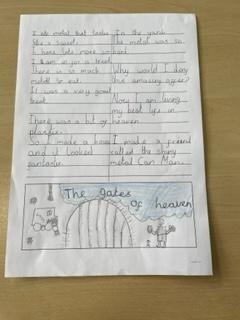 I ate metal that tastes
like a sweet.
I have lots more so
I am in for a treat
there is so much
metal to eat.
It was a very good
treat
There was a bit of
plastic.
So I made a
and it looked
fantastic.
In the yard
the metal was so
hard.
Why would I deny
this amazing offer?
Now I am living
my best life in
heaven
I made a friend
called the shiny
metal Can Man.
The gates
of heaven